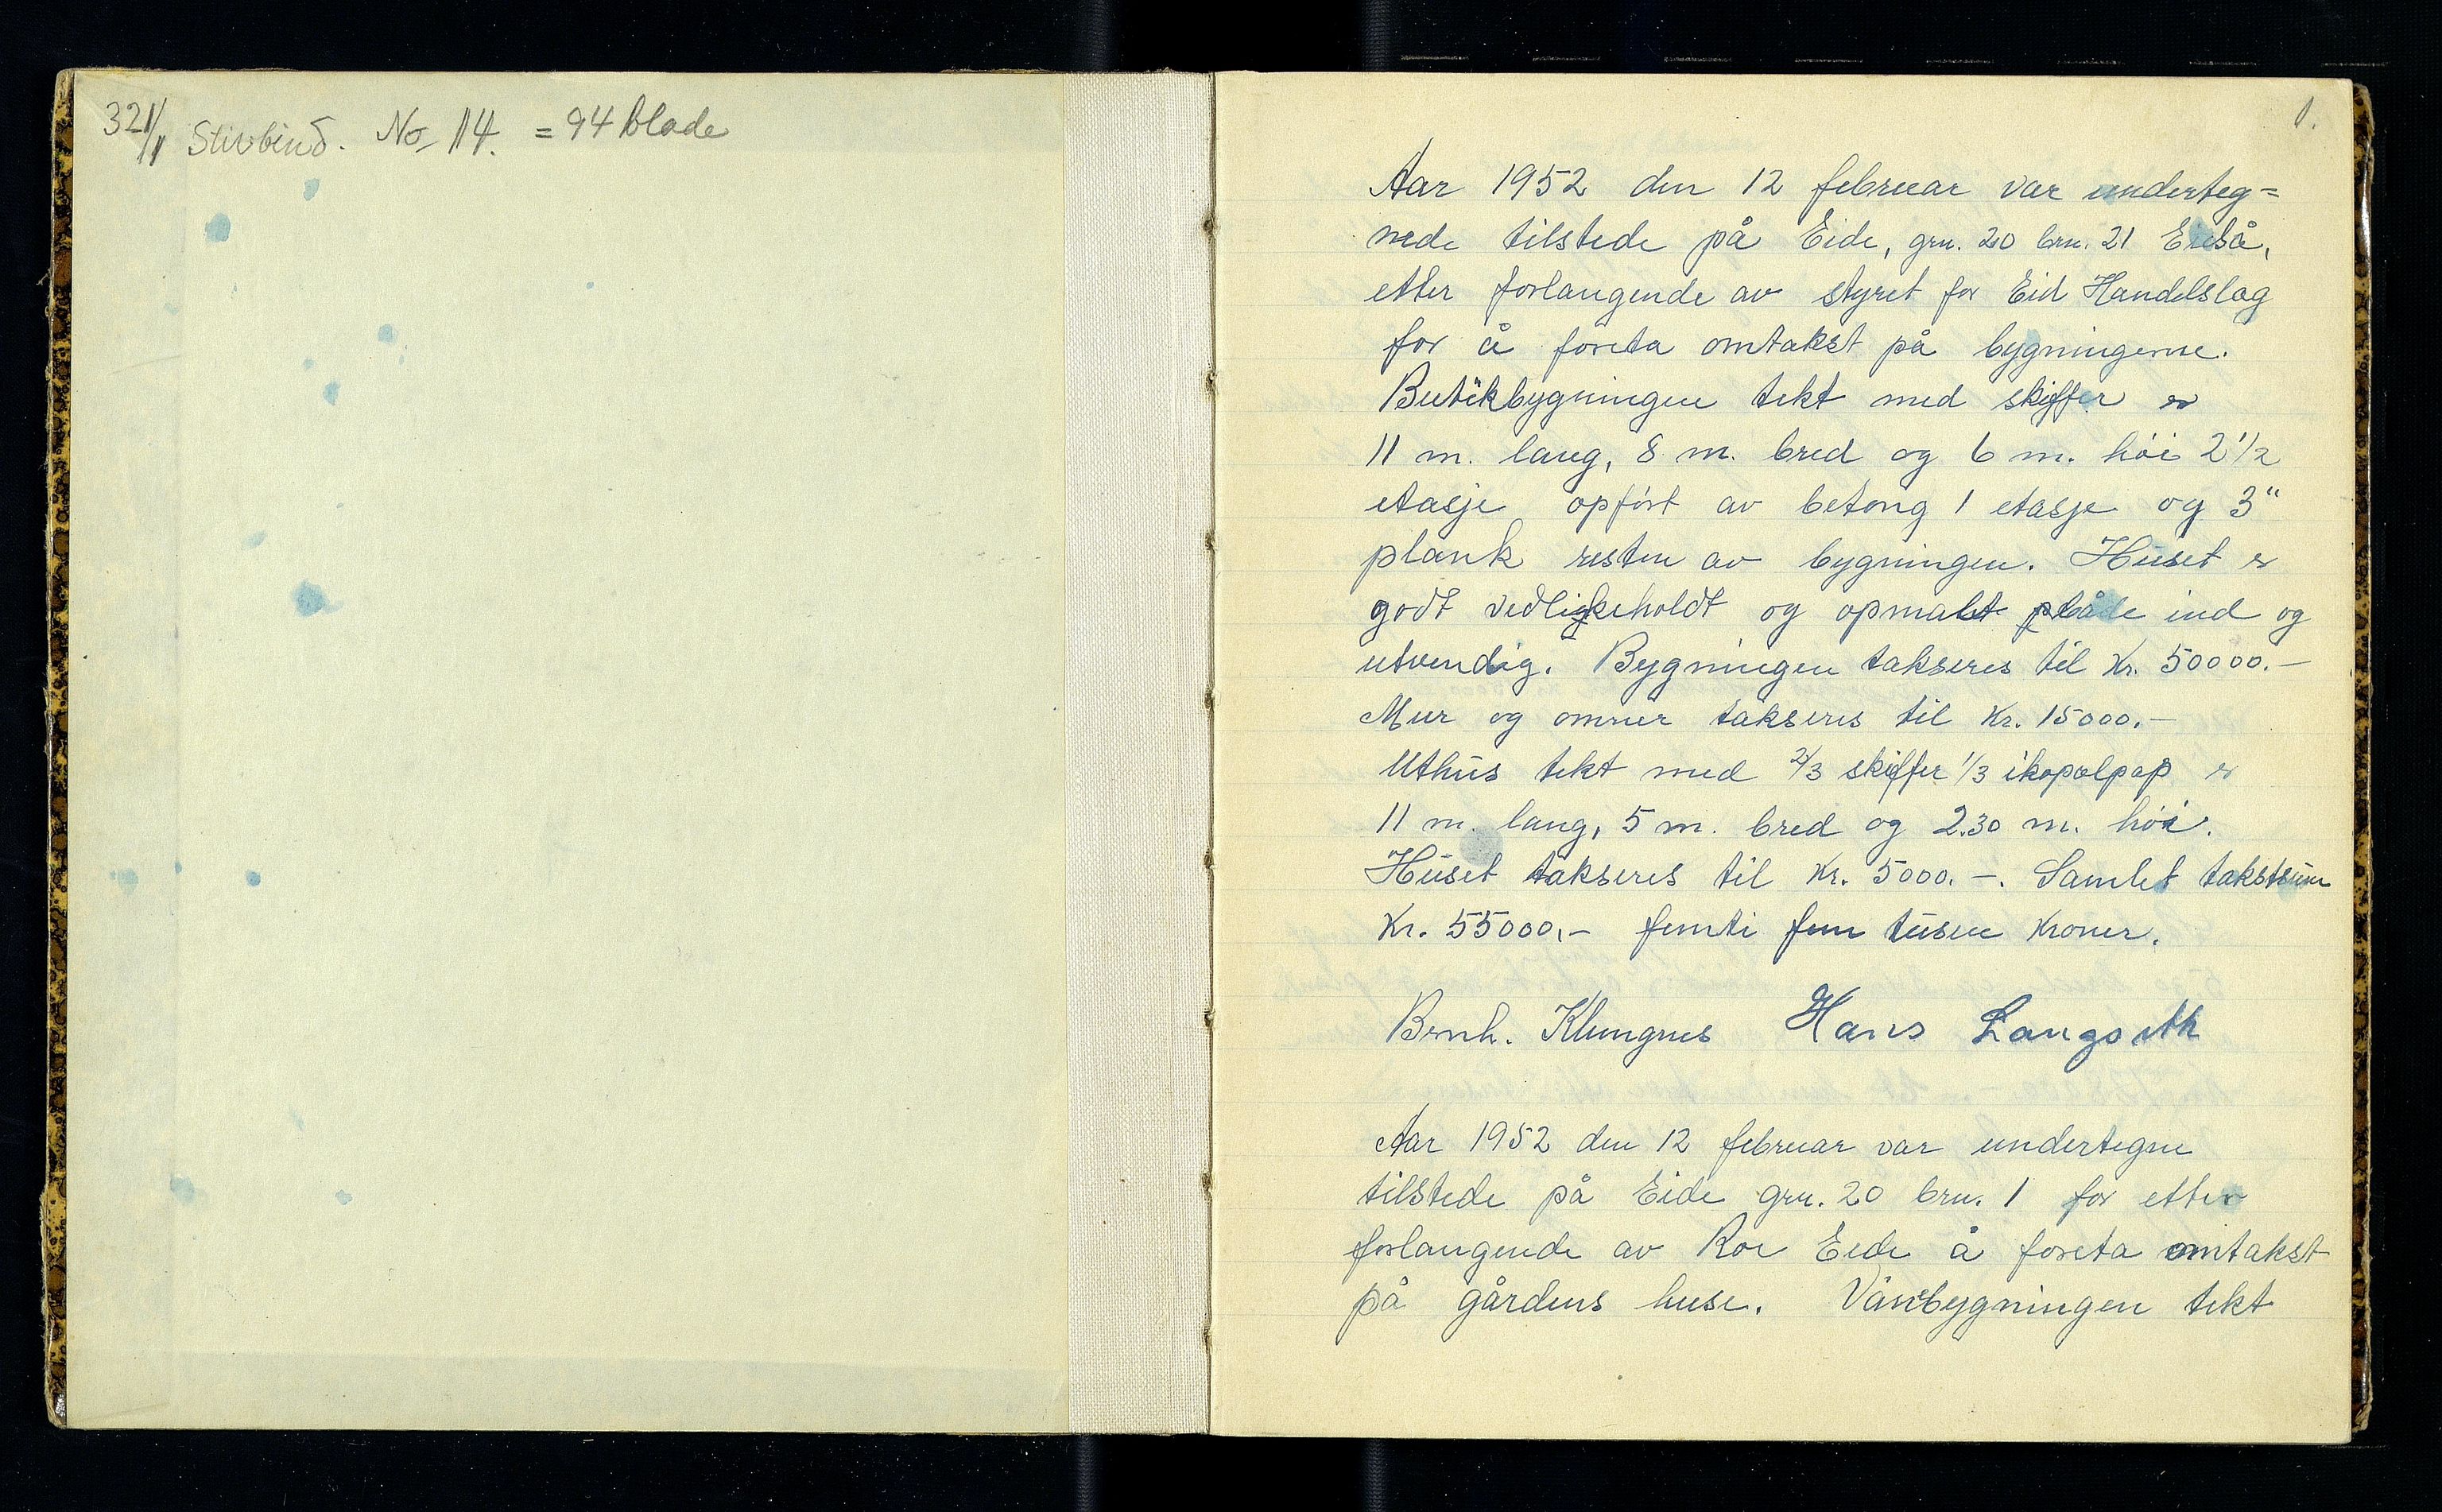 321/1 Stivbind. No 14. = 94 blade
1.
Aar 1952 den 12 februar var underteg=
nede tilstede på Eide, grn. 20 brn. 21
etter forlangende av styret for Eid Handelslag
for å foreta omtakst på bygningerne.
Butikbygningen tekt med skiffer er
11 m. lang, 8 m. bred og 6 m. höi 2 1/2
etasje opfört av betong 1 etasje og 3"
plank resten av bygningen. Huset er
godt vedlikeholdt og opmalt både ind og
utvendig. Bygningen takseres til Kr. 50000.-
Mur og omner takseres til Kr. 15000.-
Uthus tekt med 2/3 skiffer 1/3 ikopalpap er
11 m. lang, 5 m. bred og 2.30 m. höi.
Huset takseres til Kr. 5000.-. Samlet takstsum
Kr. 55000,- femti fem tusen Kroner.
Bernh. Klungnes Hans Langseth
Aar 1952 den 12 februar var undertegne
tilstede på Eide grn. 20 brn. 1 for etter
forlangende av Roe Eide å foreta omtakst
på gårdens huse. Vånbygningen tekt